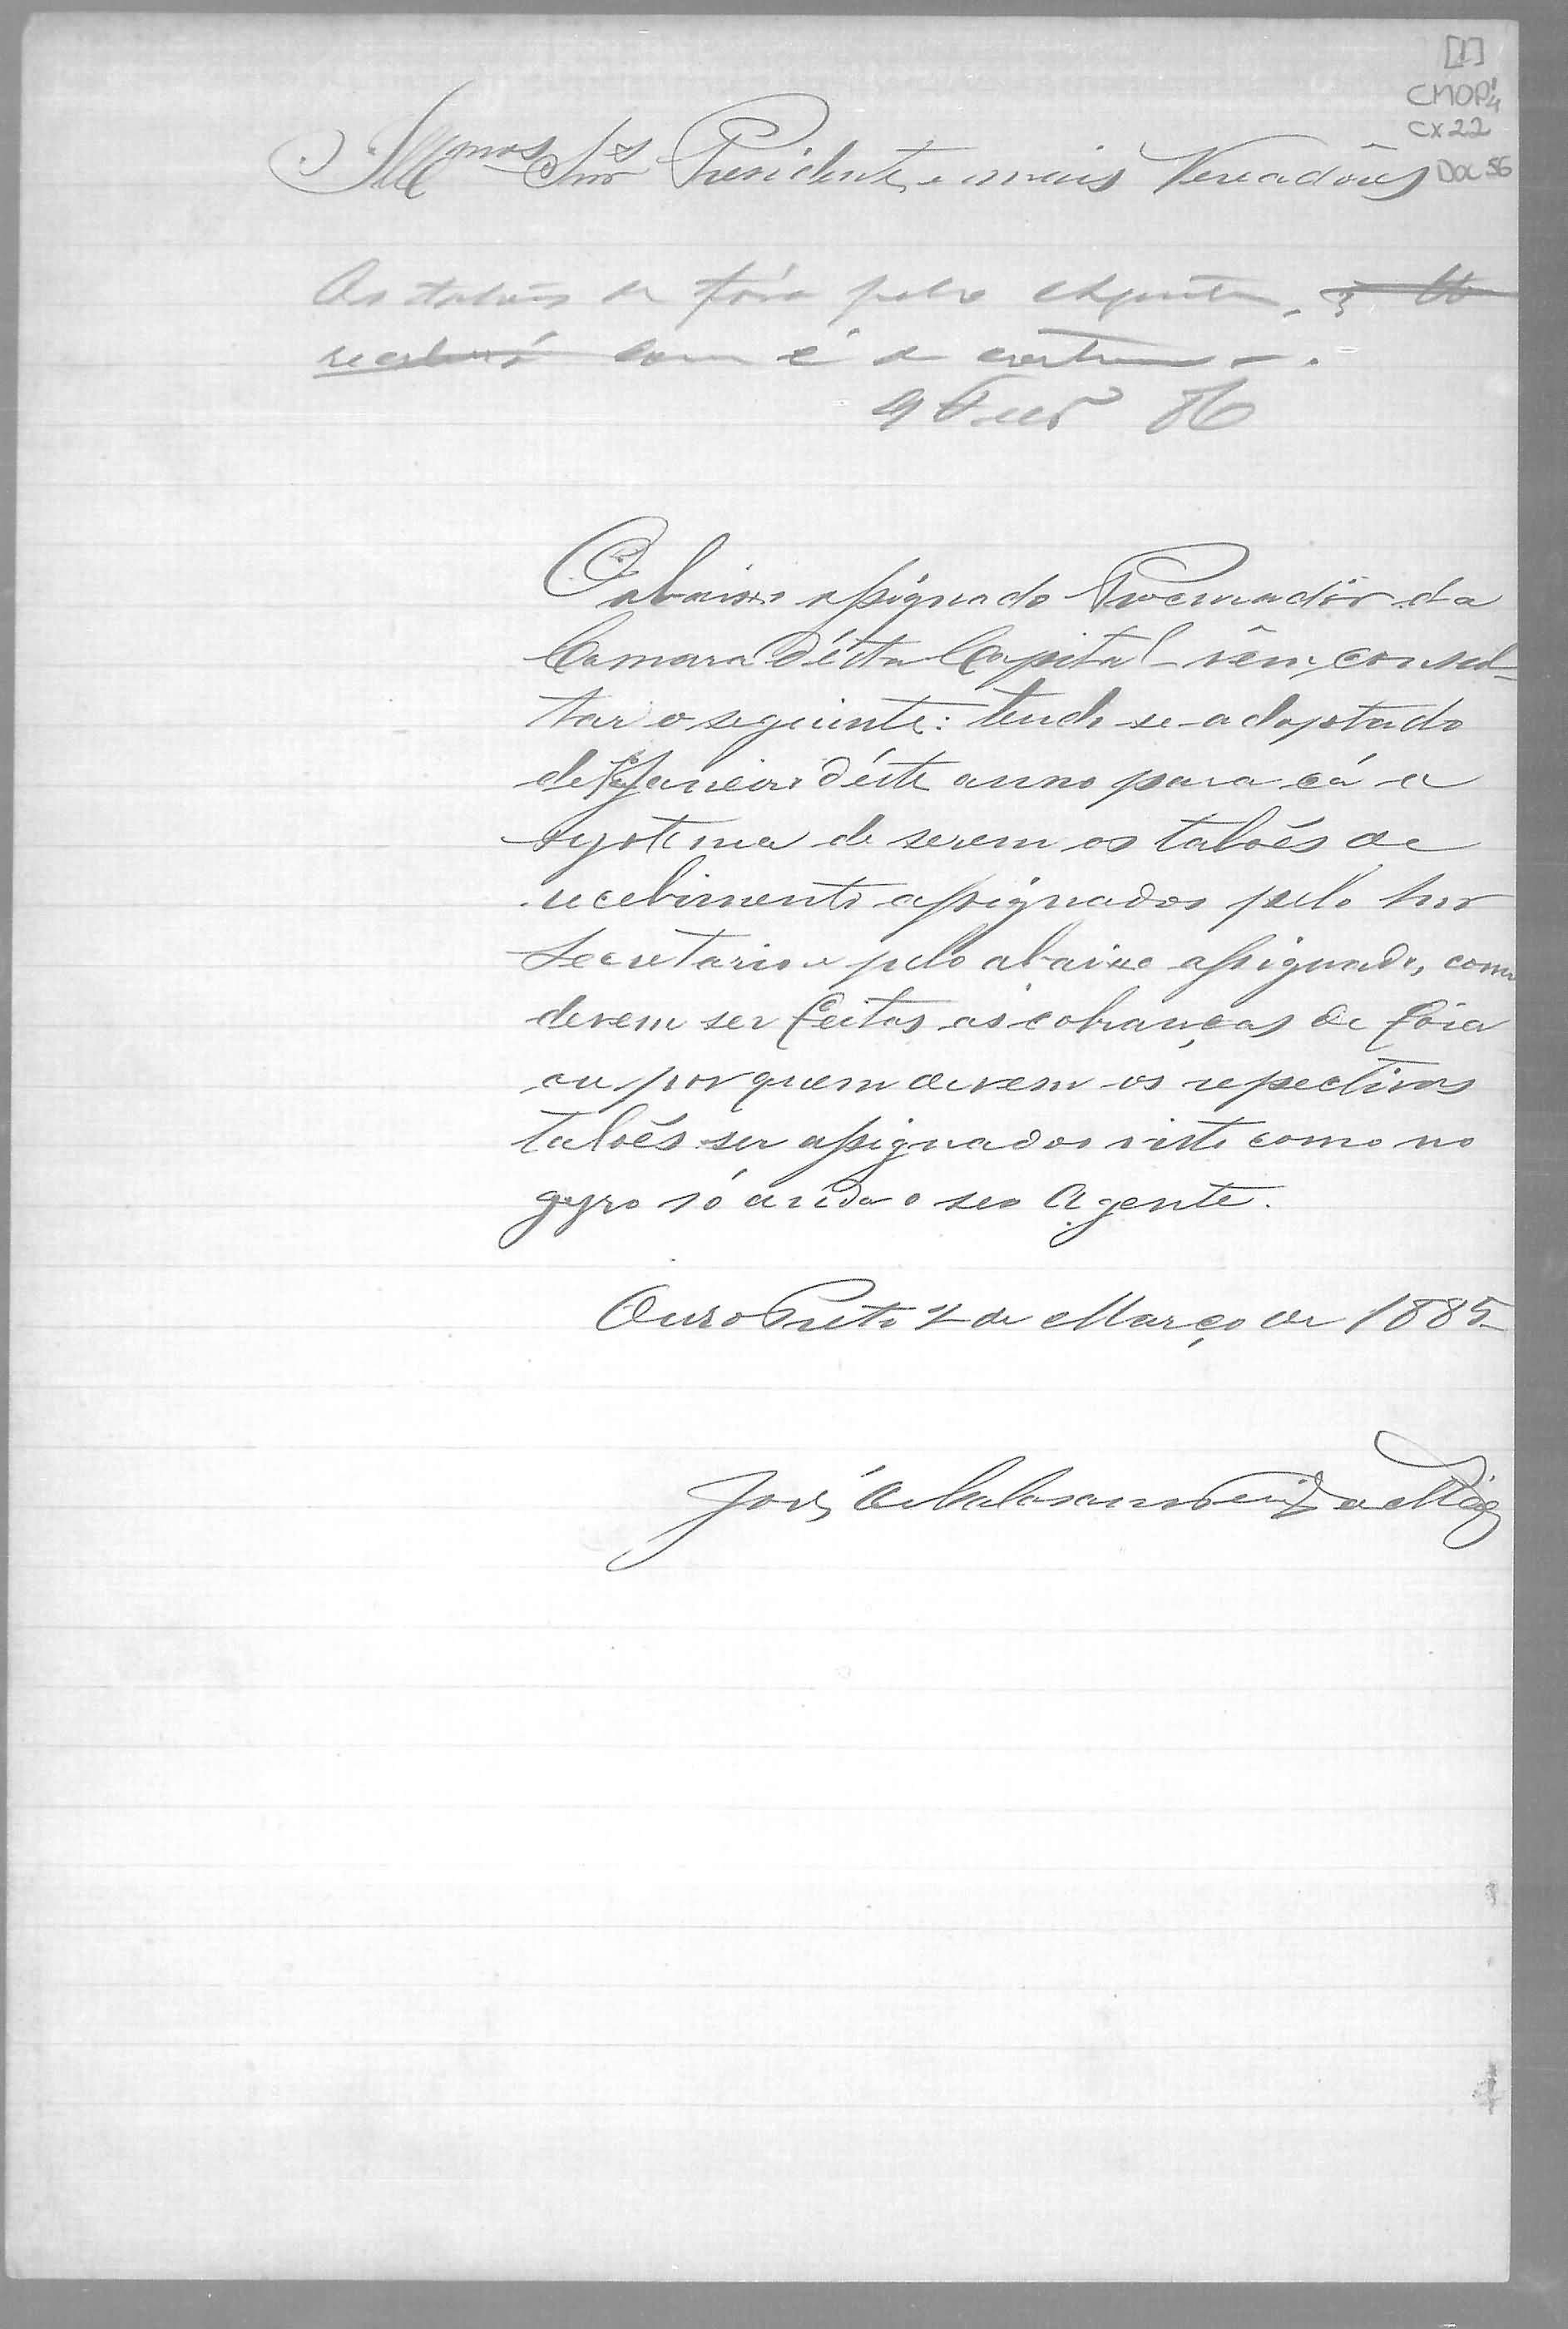 [1]
CMOP
CX 22
DOC 56
Ill.mos Snr.s Presidente e mais Vereadôres
Os talões de fóra pelo
como é de
9 Fevr.º 86
O abaixo assignado Procuradôr da
Camara d'ésta Capital vêm consul-
tar o seguinte: tendo se adoptado
de Janeiro d'éste anno para cá o
systema de serem os talões de
recebimento assignados pelo Snr
Secretario e pelo abaixo assignado, como
devem ser feitas as cobranças de fóra
ou por quem devem os repectivos
talões ser assignados visto como no
gyro só anda o seo Agente.
Ouro Preto 2 de Março de 1885
José de Calasans